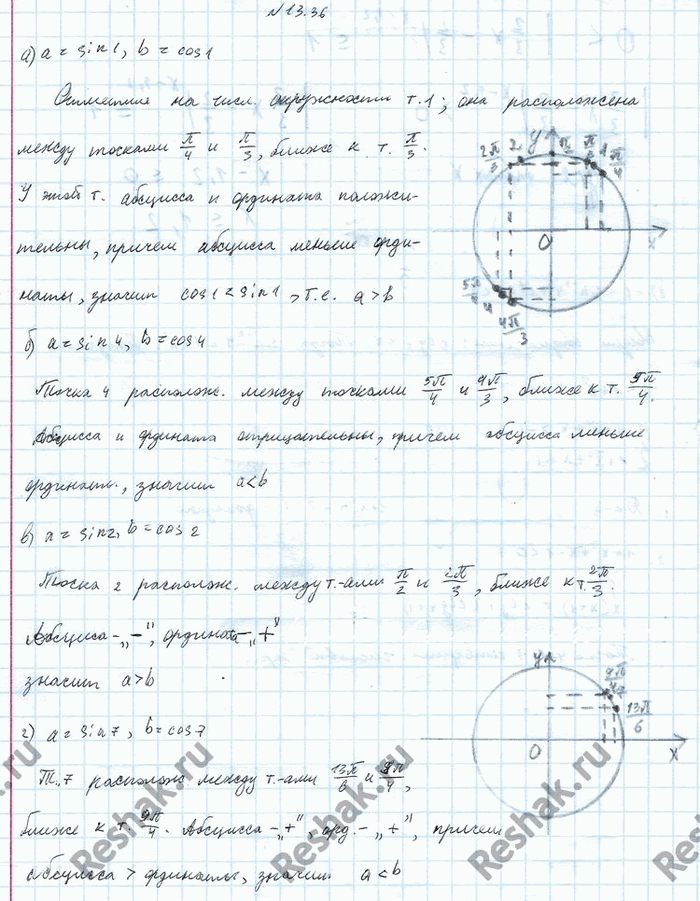 №13.36
а) a = sin1, b = cos1
Отметим на числ. окружности т.1; она расположена
между точками π/4 и π/3, ближе к т. π/3.
У этой т. абсцисса и ордината положи-
тельны, причем абсцисса меньше орди-
наты, значит cos1 < sin1, т.е. a > b
б) a = sin4, b = cos4
Точка 4 располож. между точками 5π/4 и 4π/3, ближе к т. 5π/4.
Абсцисса и ордината отрицательны, причем абсцисса меньше
ординаты, значит a < b
в) a = sin2, b = cos2
Точка 2 располож. между т-ами π/2 и 2π/3, ближе к т. 2π/3.
Абсцисса - „-", ордината - „+"
значит a > b
г) a = sin7, b = cos7
Т. 7 располож между т-ами 13π/6 и 9π/4,
ближе к т. 9π/4. Абсцисса - „+", орд. - „+", причем
абсцисса > ординаты, значит a < b
2π/3 2 y π/2 π/3 1 π/4
0 x
5π/4 4
4π/3
y 9π/4 7
13π/6
0 x
Reshak.ru
Reshak.ru
Reshak.ru